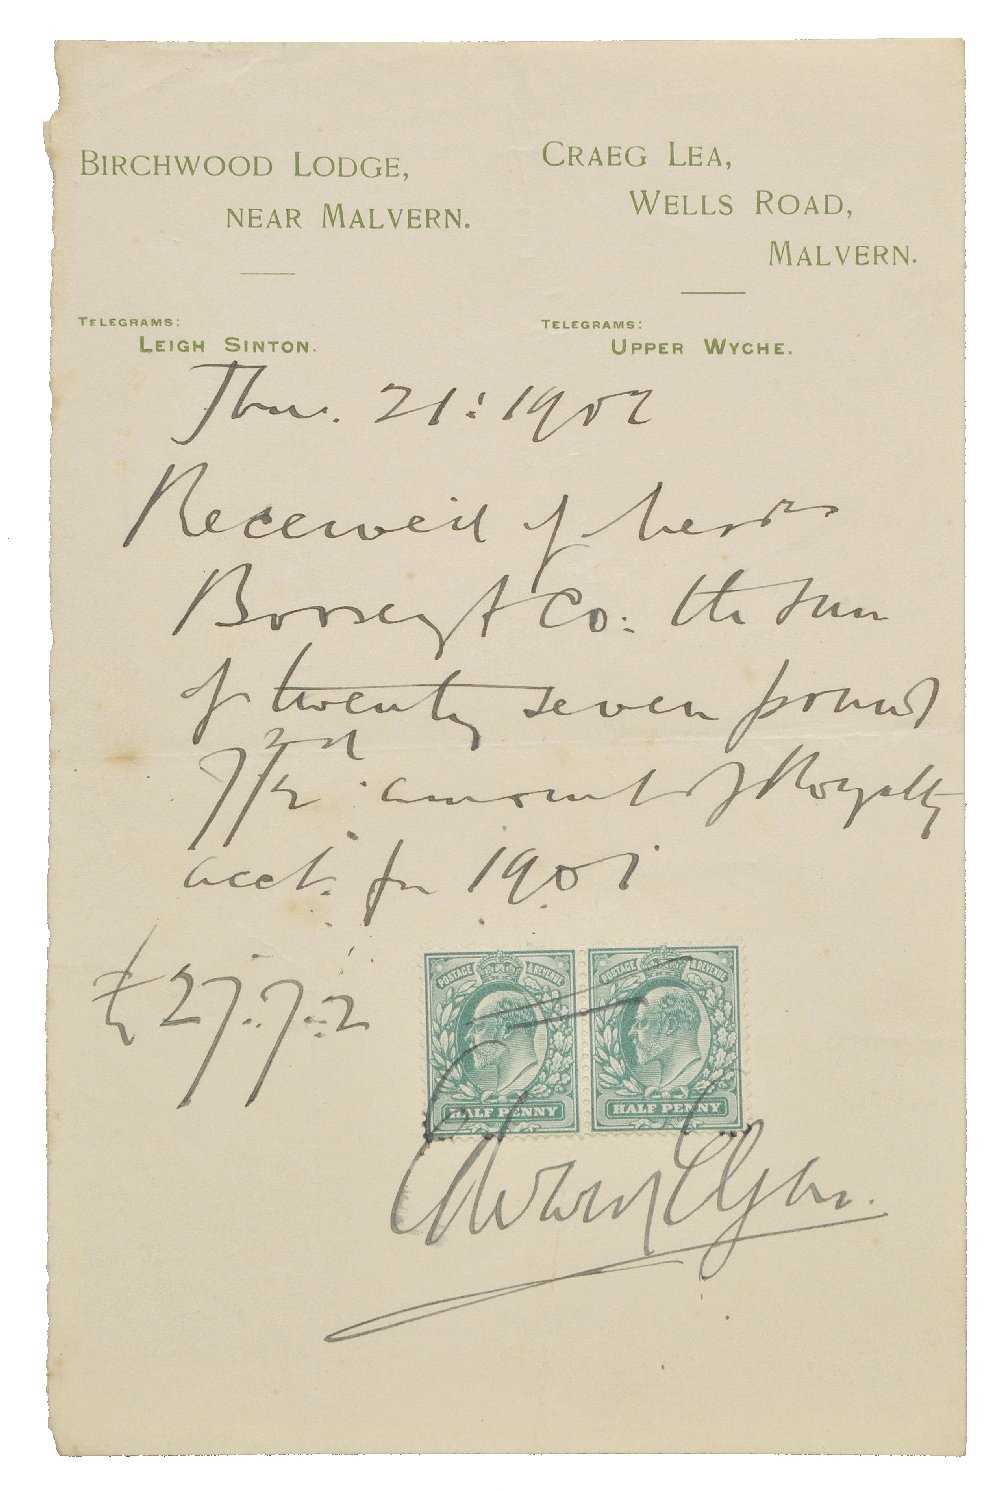 BIRCHWOOD LODGE,
NEAR MALVERN.
TELEGRAMS:
LEIGH SINTON.
CRAEG LEA,
WELLS ROAD,
MALVERN.
TELEGRAMS:
UPPER WYCHE.
21: 1902
Received of Messrs
Boosey & Co: the sum
of twenty seven pounds
7/2d amount of Royalty
acct. for 1901
£27.7.2
POSTAGE & REVENUE
HALF PENNY
POSTAGE & REVENUE
HALF PENNY
Edward Elgar.